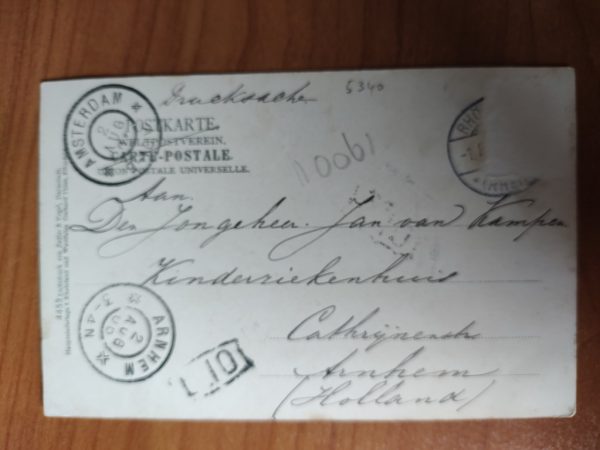 Drucksache
5340
POSTKARTE.
WELTPOSTVEREIN.
CARTE-POSTALE.
UNION POSTALE UNIVERSELLE.
AMSTERDAM
2 AUG
1900
Aan
Den Jongeheer Jan van Kampen
Kinderziekenhuis
Cathrijnenstr
Arnhem
(Holland)
ARNHEM
2 AUG
3-4N
101